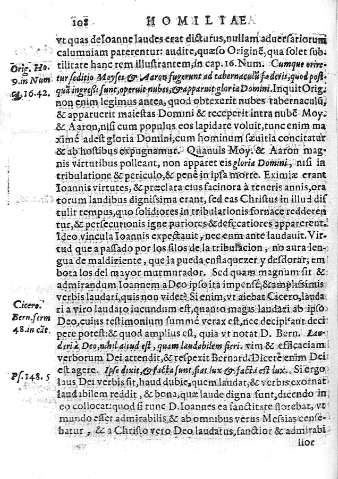 108 HOMILIAE
vt quas de Ioanne laudes erat dicturus, nullam aduersariorum
calumniam paterentur: audite, quæso Origenẽ, qua solet sub-
tilitate hanc rem illustrantem, in cap. 16. Num. Cumque orire-
Orig. Ho.
tur seditio Moyses & Aaron fugerunt ad tabernaculũ fœderis, quod post-
9. in Num
quã ingressi sunt, operuit nubes, & apparuit gloria Domini. Inquit Orig.
16.42.
non enim legimus antea, quod obtexerit nubes tabernaculũ,
& apparuerit maiestas Domini & receperit intra nubẽ Moy.
& Aaron, nisi cum populus eos lapidare voluit, tunc enim ma
ximè adest gloria Domini, cum hominum sæuitia concitatur
& ab hostibus expugnamur. Quamuis Moy. & Aaron mag-
nis virtutibus polleant, non apparet eis gloria Domini, nisi in
tribulatione & periculo, & penè in ipsa morte. Eximiæ erant
Ioannis virtutes, & præclara eius facinora à teneris annis, ora-
torum laudibus dignissima erant, sed eas Christus in illud dis
tulit tempus, quo solidiores in tribulationis fornace redderen
tur, & persecutionis igne puriores & defæcatiores apparerent.
Ideo vincula Ioannis expectauit, nec enim ante laudauit. Virtud
que a passado por los filos de la tribulacion, no aura len-
gua de maldiziente, que la pueda ensaquezer, y desdorar; em
bota los del mayor murmurador. Sed quam magnum sit &
admirandum Ioannem a Deo ipso ita impensè, & amplissimis
verbis laudari, quis non videt? Si enim, vt aiebat Cicero, lauda
Cicero.
ri a viro laudato iucundum est, quanto magis laudari ab ipso
Bern. serm
Deo, cuius testimonium summè verax est, nec decipi aut deci
48. in cãt.
pere potest: & quod amplius est, quia vt notat D. Bern. Lau-
deri à Deo, nihil aliud est, quam laudabilem fieri. vim & efficaciam
verborum Dei attendit, & respexit Bernard. Dicere enim Dei
est agere. Ipse dixit, & facta sunt, fiat lux & facta est lux. Si ergo
Ps. 148. 5
laus Dei verbis sit, haud dubiè, quem laudat, & verbis exornat
laudabilem reddit, & bona, quæ laude digna sunt, dicendo in
eo collocat: quod si tunc D. Ioannes ea sanctitate florebat, vt
mundo esset admirabilis, & ab omnibus verus Messias cense-
batur, & a Christo vero Deo laudatus, sanctior & admirabi
lior